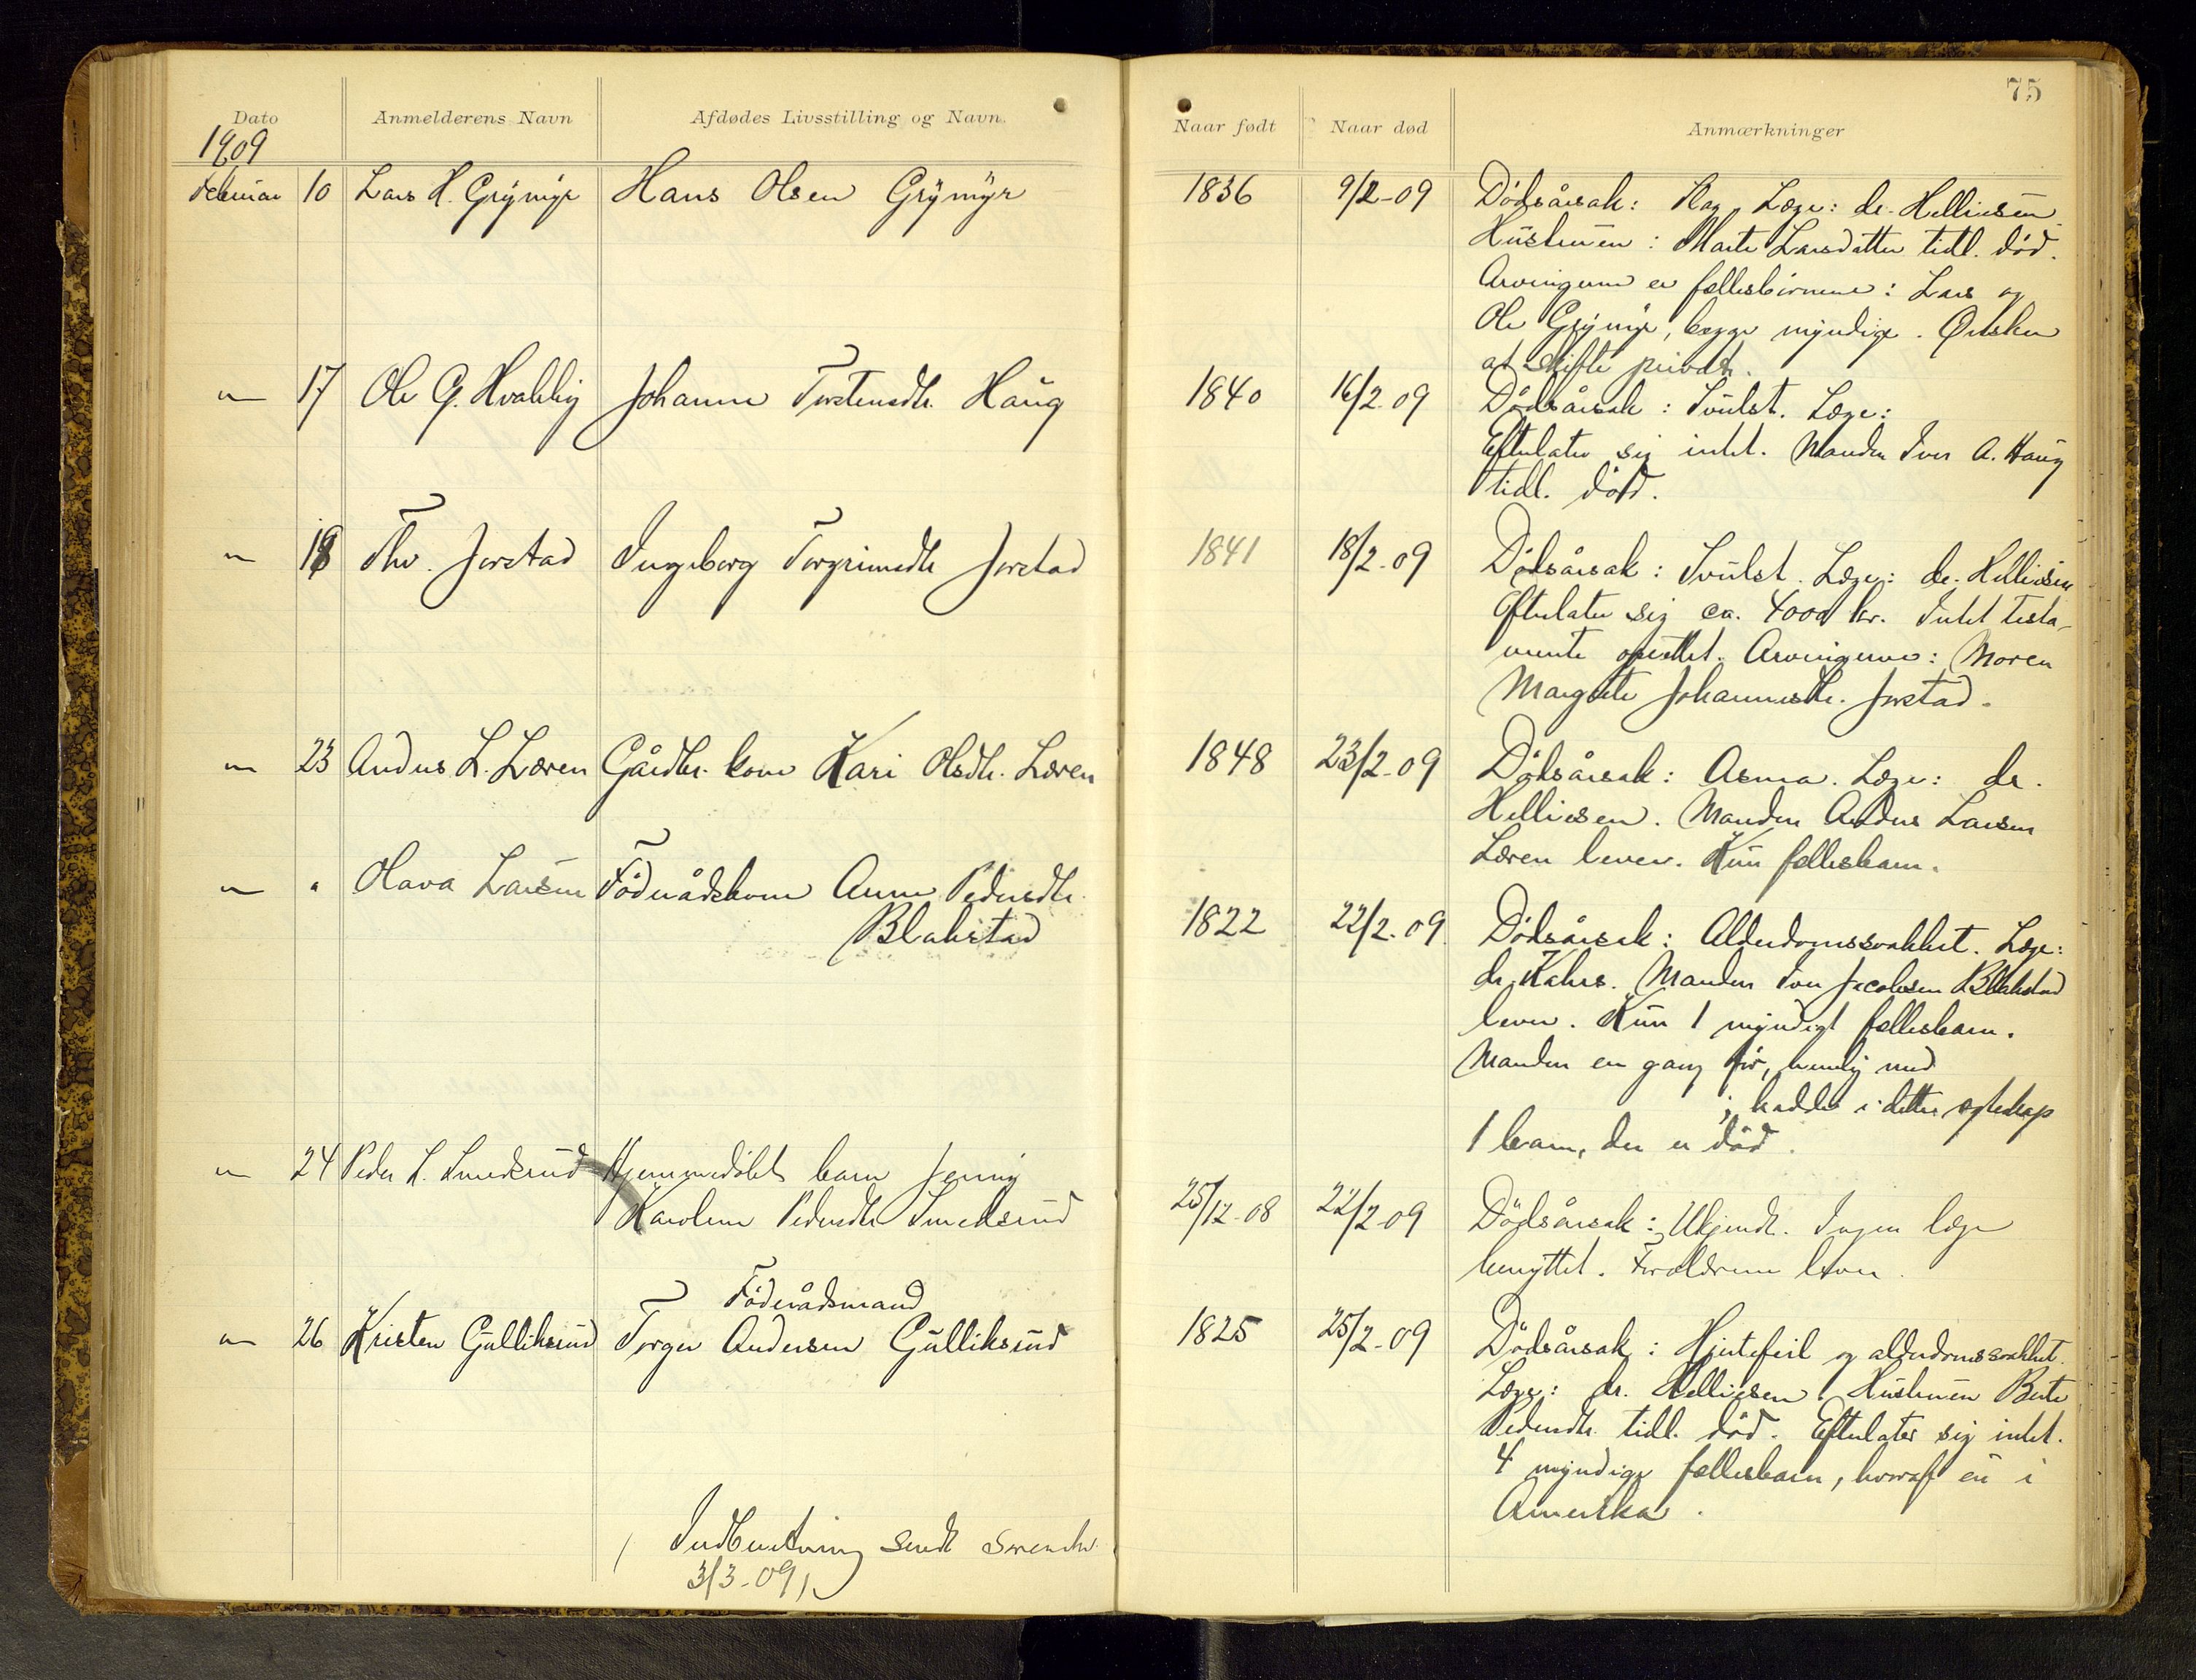 75
Dato
Anmelderens Navn
Afdødes Livsstilling og Navn.
Naar født
Naar død
Anmærkninger
1909
Februar 10 Lars H. Grymyr Hans Olsen Grymyr 1836 9/2-09 Dödsårsak: Slag. Læge: dr. Helliesen.
Hustruen: Marte Larsdatter tidl. död.
Arvingerne er fællesbörnene: Lars og
Ole Grymyr, begge myndige. Önsker
at skifte privat.
" 17 Ole G. Hvaleby Johanne Torstensdtr. Haug 1840 16/2-09 Dödsårsak: Svulst. Læge:
Efterlater sig intet. Manden Iver A. Haug
tidl. död.
" 18 Thv. Jorstad Ingeborg Torgrimsdtr Jorstad 1841 18/2-09 Dödsårsak: Svulst. Læge: dr. Helliesen
Efterlater sig ca. 4000 kr. Intet testa-
mente oprettet. Arvingerne: Moren
Margrete Johannesdtr. Jorstad.
" 23 Anders L. Læren Gårdbr. kone Kari Olsdtr. Læren 1848 23/2-09 Dödsårsak: Asma. Læge: dr.
Helliesen. Manden Anders Larsen
Læren lever. Kun fællesbarn.
" " Olava Larsen Föderådskone Anne Pedersdtr. 1822 22/2-09 Dödsårsak: Alderdomssvakhet. Læge:
Blakstad
dr. Kahrs. Manden Iver Jacobsen Blakstad
lever. Kun 1 myndigt fællesbarn.
Manden en gang för, nemlig med
; hadde i dette egteskap
1 barn, der er död.
" 24 Peder L. Smedsrud Hjemmedöbt barn Jenny 25/12-08 22/2-09 Dödsårsak: Ukjendt. Ingen læge
Karoline Pedersdtr Smedsrud
benyttet. Forældrene lever.
Föderådsmand
" 26 Kristen Gulliksrud Torger Andersen Gulliksrud 1825 25/2-09 Dödsårsak: Hjertefeil og alderdomssvakhet.
Læge: dr. Helliesen. Hustruen Berte
Pedersdtr. tidl. död. Efterlater sig intet.
4 myndige fællesbarn, hvoraf en i
Amerika.
( Indberetning sendt sorenskr.
3/3-09)